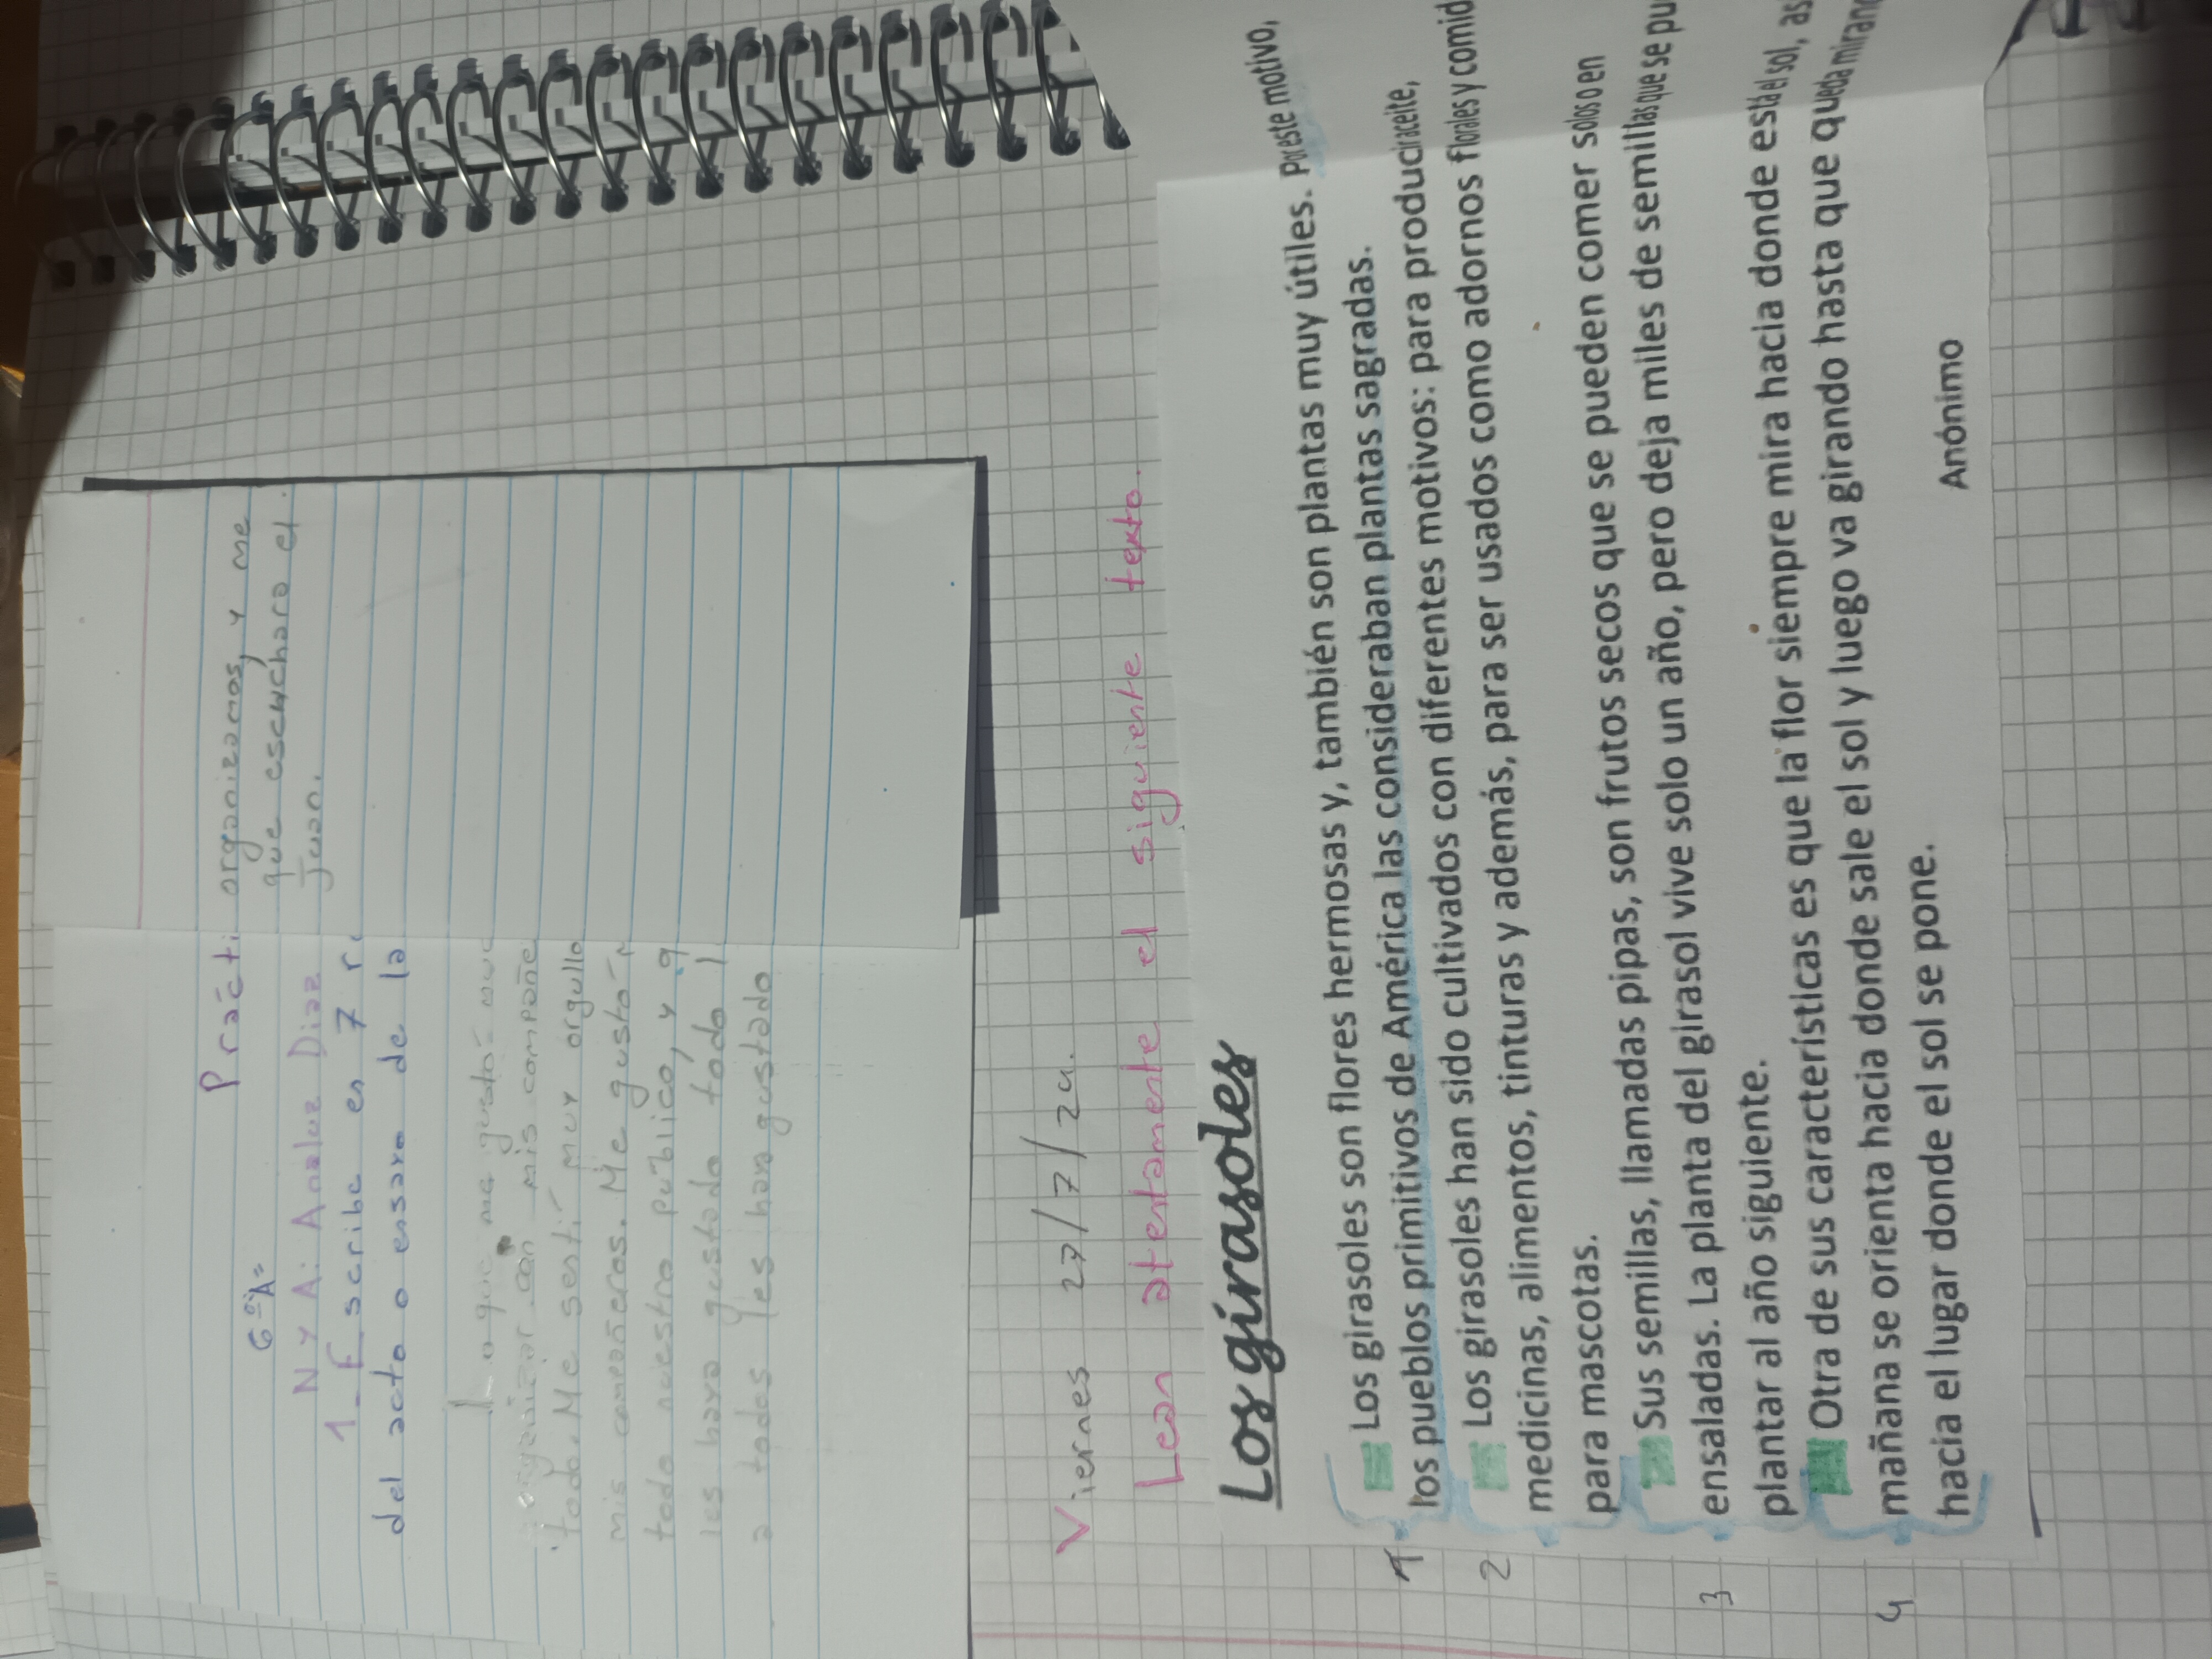 Practi
6º "A"
N y A: Analuz Diaz
1- Escribe en 7 r
del acto o ensayo de la
Lo que me gustó
organizar con mis compañe
todo. Me sentí muy orgullo
mis compañeros. Me gustó
todo nuestro público, y q
les haya gustado todo l
a todos les haya gustado
organizamos, y me
que escucharo el
Juan.
Viernes 27/7/24.
Lean atentamente el siguiente texto.
Los girasoles
1
Los girasoles son flores hermosas y, también son plantas muy útiles. Por este motivo,
los pueblos primitivos de América las consideraban plantas sagradas.
2
Los girasoles han sido cultivados con diferentes motivos: para producir aceite,
medicinas, alimentos, tinturas y además, para ser usados como adornos florales y comid
para mascotas.
3
Sus semillas, llamadas pipas, son frutos secos que se pueden comer solos o en
ensaladas. La planta del girasol vive solo un año, pero deja miles de semillas que se pu
plantar al año siguiente.
4
Otra de sus características es que la flor siempre mira hacia donde está el sol, as
mañana se orienta hacia donde sale el sol y luego va girando hasta que queda miran
hacia el lugar donde el sol se pone.
Anónimo